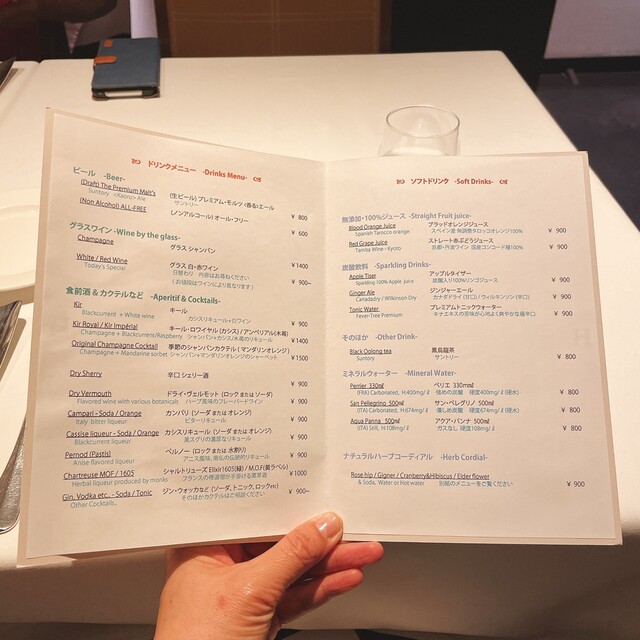 ドリンクメニュー -Drinks Menu-
ビール -Beer-
(Draft) The Premium Malt's (生ビール) プレミアム・モルツ <香る>エール ¥ 800
Suntory <Kaoru> Ale サントリー
(Non Alcohol) ALL-FREE (ノンアルコール) オール・フリー ¥ 600
グラスワイン -Wine by the glass-
Champagne グラス シャンパン ¥1400
White / Red Wine グラス 白・赤ワイン ¥ 900~
Today's Special 日替わり 内容はお尋ねください
(お値段はワインにより異なります)
食前酒 & カクテルなど -Aperitif & Cocktails-
Kir キール ¥ 900
Blackcurrent + White wine カシスリキュール+白ワイン
Kir Royal / Kir Impérial キール・ロワイヤル (カシス) / アンペリアル(木苺) ¥1400
Champagne + Blackcurrent/Raspberry シャンパン+カシス/木苺のリキュール
Original Champagne Cocktail 季節のシャンパンカクテル ( マンダリンオレンジ) ¥1500
Champagne + Mandarine sorbet シャンパン+マンダリンオレンジのシャーベット
Dry Sherry 辛口 シェリー酒 ¥ 900
Dry Vermouth ドライ・ヴェルモット (ロック または ソーダ) ¥ 900
Flavored wine with various botanicals ハーブ風味のフレーバードワイン
Campari - Soda / Orange カンパリ (ソーダ または オレンジ) ¥ 900
Italy bitter liqueur ビターリキュール
Cassise liqueur - Soda / Orange カシスリキュール (ソーダ または オレンジ) ¥ 900
Blackcurrent liqueur 黒スグリの濃厚なリキュール
Pernod (Pastis) ペルノー (ロック または 水割り) ¥ 900
Anise flavored liqueur アニス風味、南仏の伝統的リキュール
Chartreuse MOF / 1605 シャルトリューズ Elixir1605(緑) / M.O.F(黄ラベル) ¥1000
Herbal liqueur produced by monks フランスの修道僧が手掛ける薬草酒
Gin, Vodka etc.. - Soda / Tonic ジン・ウォッカなど (ソーダ, トニック, ロックetc) ¥ 900~
Other Cocktails.. そのほかカクテルはご相談ください
ソフトドリンク -Soft Drinks-
無添加・100%ジュース -Straight Fruit juice-
Blood Orange Juice ブラッドオレンジジュース ¥ 900
Spanish Tarocco orange スペイン産 無調整タロッコオレンジ100%
Red Grape Juice ストレート赤ぶどうジュース ¥ 900
Tamba Wine - Kyoto 京都・丹波ワイン 国産コンコード種100%
炭酸飲料 -Sparkling Drinks-
Apple Tiser アップルタイザー ¥ 900
Sparkling 100% Apple juice 炭酸入り100%リンゴジュース
Ginger Ale ジンジャーエール ¥ 900
Canadadry / Wilkinson Dry カナダドライ (甘口) / ウィルキンソン (辛口)
Tonic Water プレミアムトニックウォーター ¥ 900
Fever-Tree Premium キナエキスの苦味が心地よく爽やかな極辛口
そのほか -Other Drink-
Black Oolong tea 黒烏龍茶 ¥ 800
Suntory サントリー
ミネラルウォーター -Mineral Water-
Perrier 330㎖ ペリエ 330mℓ ¥ 800
(FRA) Carbonated, H.400mg/ℓ 強めの炭酸 硬度400mg/ℓ(硬水)
San Pellegrino 500㎖ サン・ペレグリノ 500㎖ ¥ 800
(ITA) Carbonated, H.674mg/ℓ 優しめ炭酸 硬度674mg/ℓ (硬水)
Aqua Panna 500㎖ アクア・パンナ 500㎖ ¥ 800
(ITA) Still, H.108mg/ℓ ガスなし 硬度108mg/ℓ
ナチュラルハーブコーディアル -Herb Cordial-
Rose hip / Gigner / Cranberry&Hibiscus / Elder flower ¥ 900
& Soda, Water or Hot water 別紙のメニューをご覧ください